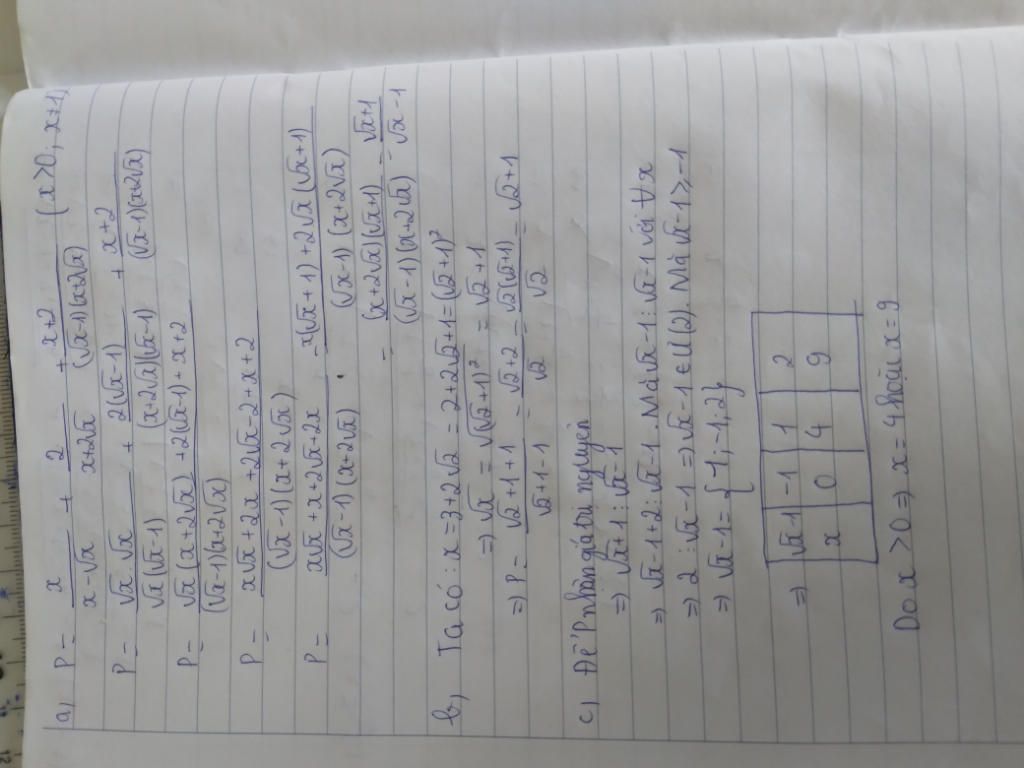 a) P = x/(x-√x) + 2/(x+2√x) + (x+2)/((√x-1)(x+2√x)) (x>0, x≠1)
P = (√x.√x)/(√x(√x-1)) + (2(√x-1))/((x+2√x)(√x-1)) + (x+2)/((√x-1)(x+2√x))
P = (√x(x+2√x)+2(√x-1)+x+2)/((√x-1)(x+2√x))
P = (x√x+2x+2√x-2+x+2)/((√x-1)(x+2√x))
P = (x√x+x+2√x+2x)/((√x-1)(x+2√x)) = (x(√x+1)+2√x(√x+1))/((√x-1)(x+2√x))
= ((x+2√x)(√x+1))/((√x-1)(x+2√x)) = (√x+1)/(√x-1)
b) Ta có: x=3+2√2 = 2+2√2+1=(√2+1)²
⇒ √x = √((√2+1)²) = √2+1
⇒ P = (√2+1+1)/(√2+1-1) = (√2+2)/√2 = (√2(√2+1))/√2 = √2+1
c) Để P nhận giá trị nguyên
⇒ √x+1 ⋮ √x-1
⇒ √x-1+2 ⋮ √x-1. Mà √x-1 ⋮ √x-1 với ∀x
⇒ 2 ⋮ √x-1 ⇒ √x-1 ∈ Ư(2). Mà √x-1 ≥ -1
⇒ √x-1 = {1; -1; 2}
⇒ √x-1 -1 1 2
x 0 4 9
Do x>0 ⇒ x=4 hoặc x=9
12